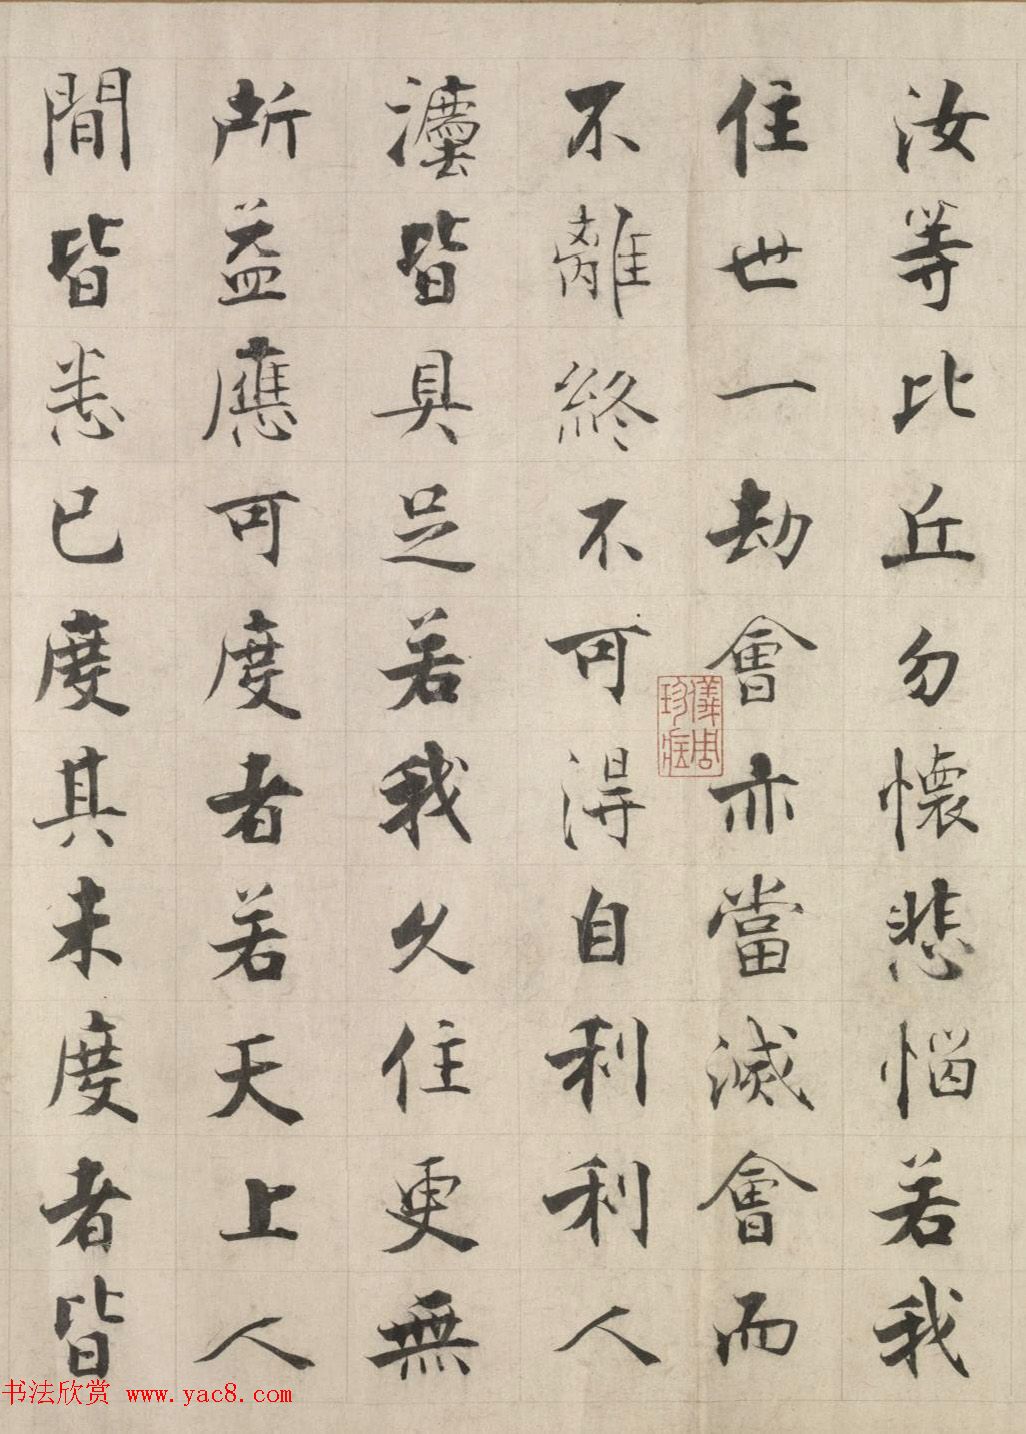 汝等比丘勿懷悲惱若我
住世一劫會亦當滅會而
不離終不可得自利利人
灋皆具足若我久住更無
所益應可度者若天上人
間皆悉已度其未度者皆
儀周珍藏
书法欣赏 www.yac8.com